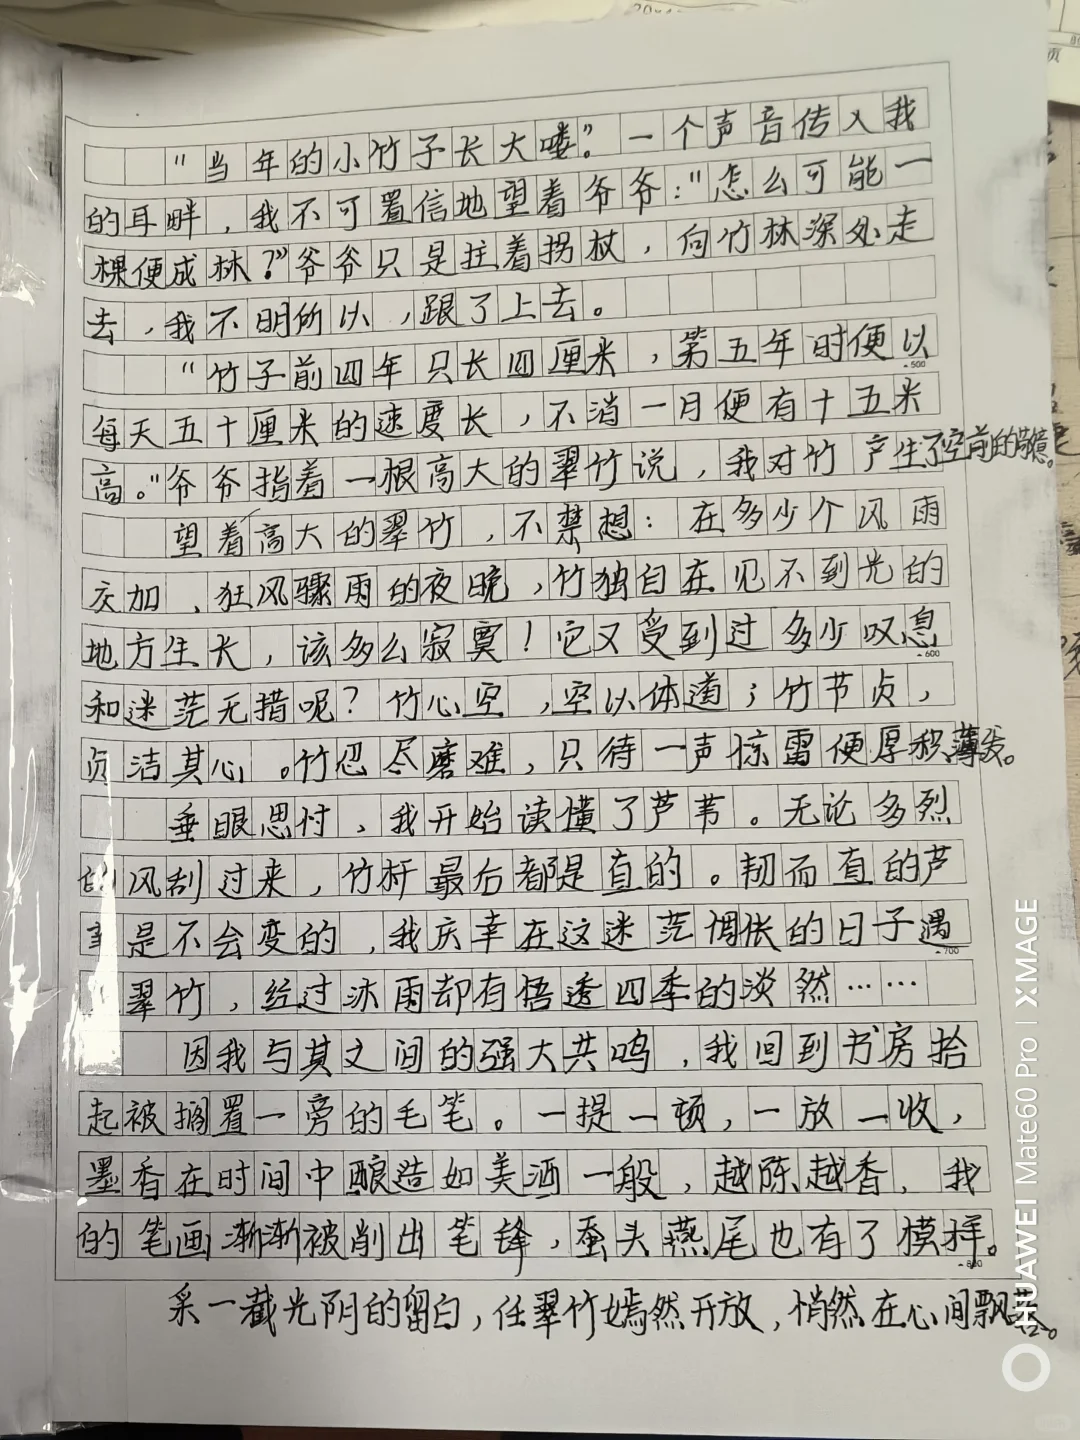 “当年的小竹子长大喽。”一个声音传入我
的耳畔，我不可置信地望着爷爷：“怎么可能一
棵便成林？”爷爷只是拄着拐杖，向竹林深处走
去，我不明所以，跟了上去。
“竹子前四年只长四厘米，第五年时便以
-500
每天五十厘米的速度长，不消一月便有十五米
高。”爷爷指着一根高大的翠竹说，我对竹产生了空前的敬意。
望着高大的翠竹，不禁想：在多少个风雨
交加、狂风骤雨的夜晚，竹独自在见不到光的
地方生长，该多么寂寞！它又受到过多少叹息
-600
和迷茫无措呢？竹心空，空以体道；竹节贞，
贞洁其心。竹忍尽磨难，只待一声惊雷便厚积薄发。
垂眼思忖，我开始读懂了芦苇。无论多烈
的风刮过来，竹杆最后都是直的。韧而直的芦
是不会变的，我庆幸在这迷茫惆怅的日子遇
-700
翠竹，经过沐雨却有悟透四季的淡然……
因我与其之间的强大共鸣，我回到书房拾
起被搁置一旁的毛笔。一提一顿，一放一收，
墨香在时间中酿造如美酒一般，越陈越香，我
的笔画渐渐被削出笔锋，蚕头燕尾也有了模样。
-800
采一截光阴的留白，任翠竹嫣然开放，悄然在心间飘
HUAWEI Mate60 Pro | XMAGE